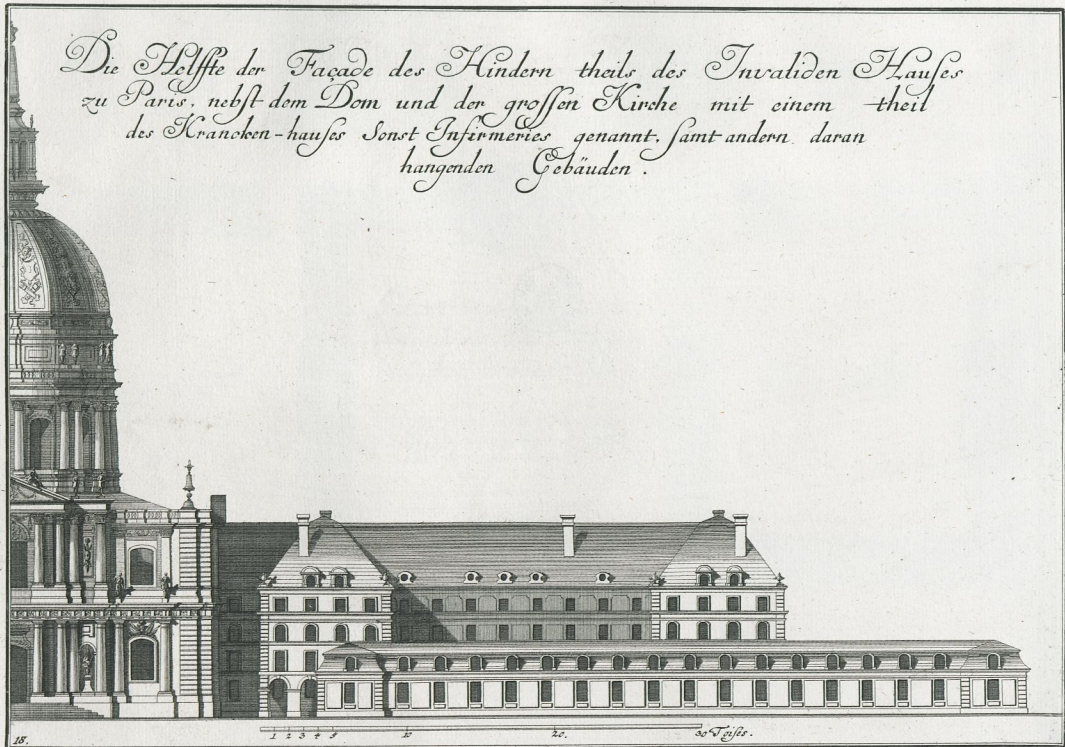 Die Helffte der Façade des Hindern theils des Invaliden Hauses
zu Paris, nebst dem Dom und der grossen Kirche mit einem theil
des Krancken-hauses Sonst Infirmeries genannt, samt andern daran
hangenden Gebäuden.
1 2 3 4 5 10 20. 30 Toises.
18.